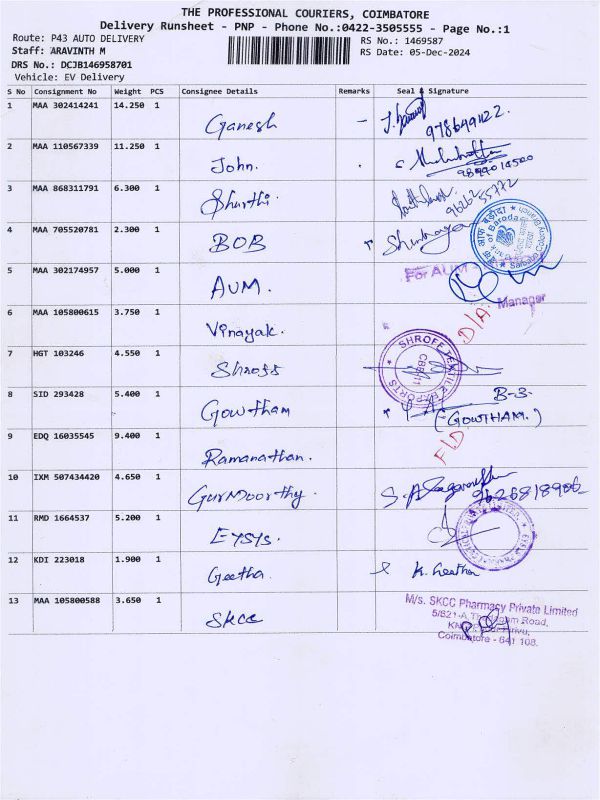 THE PROFESSIONAL COURIERS, COIMBATORE
Delivery Runsheet - PNP - Phone No.:0422-3505555 - Page No.:1
Route: P43 AUTO DELIVERY
RS No.: 1469587
Staff: ARAVINTH M
RS Date: 05-Dec-2024
DRS No.: DCJB146958701
Vehicle: EV Delivery
S No Consignment No Weight PCS Consignee Details Remarks Seal & Signature
1 MAA 302414241 14.250 1 Ganesh -
2 MAA 110567339 11.250 1 John.
3 MAA 868311791 6.300 1 Shurthi 96262 55772
4 MAA 705520781 2.300 1 BOB
बैंक ऑफ़ बड़ौदा
of Baroda
5 MAA 302174957 5.000 1 AUM.
For AUM
Manager
6 MAA 105800615 3.750 1 Vinayak. D/A
7 HGT 103246 4.550 1 Shross
SHROFF TEXTILE EXPORTS
8 SID 293428 5.400 1 Gowtham B-3.
(GOWTHAM.)
9 EDQ 16035545 9.400 1 Ramanathan. F/D
10 IXM 507434420 4.650 1 Gurmoorthy. 9626818906
11 RMD 1664537 5.200 1 EYSYS.
12 KDI 223018 1.900 1 Geetha. K. Geetha
13 MAA 105800588 3.650 1 SKCC
M/s. SKCC Pharmacy Private Limited
5/621-A, Road,
Coimbatore - 641 108.